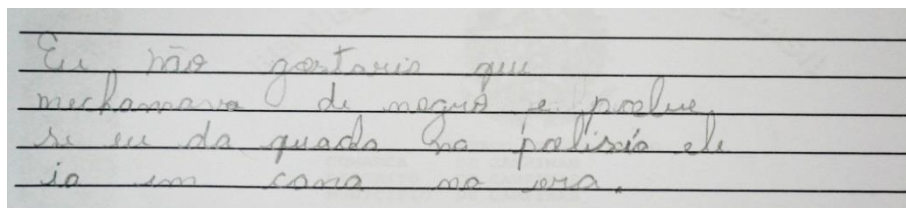 Eu não gostaria que
mechamava de negro e poblue
se eu da quada na polisia ele
ia em cana na ora.